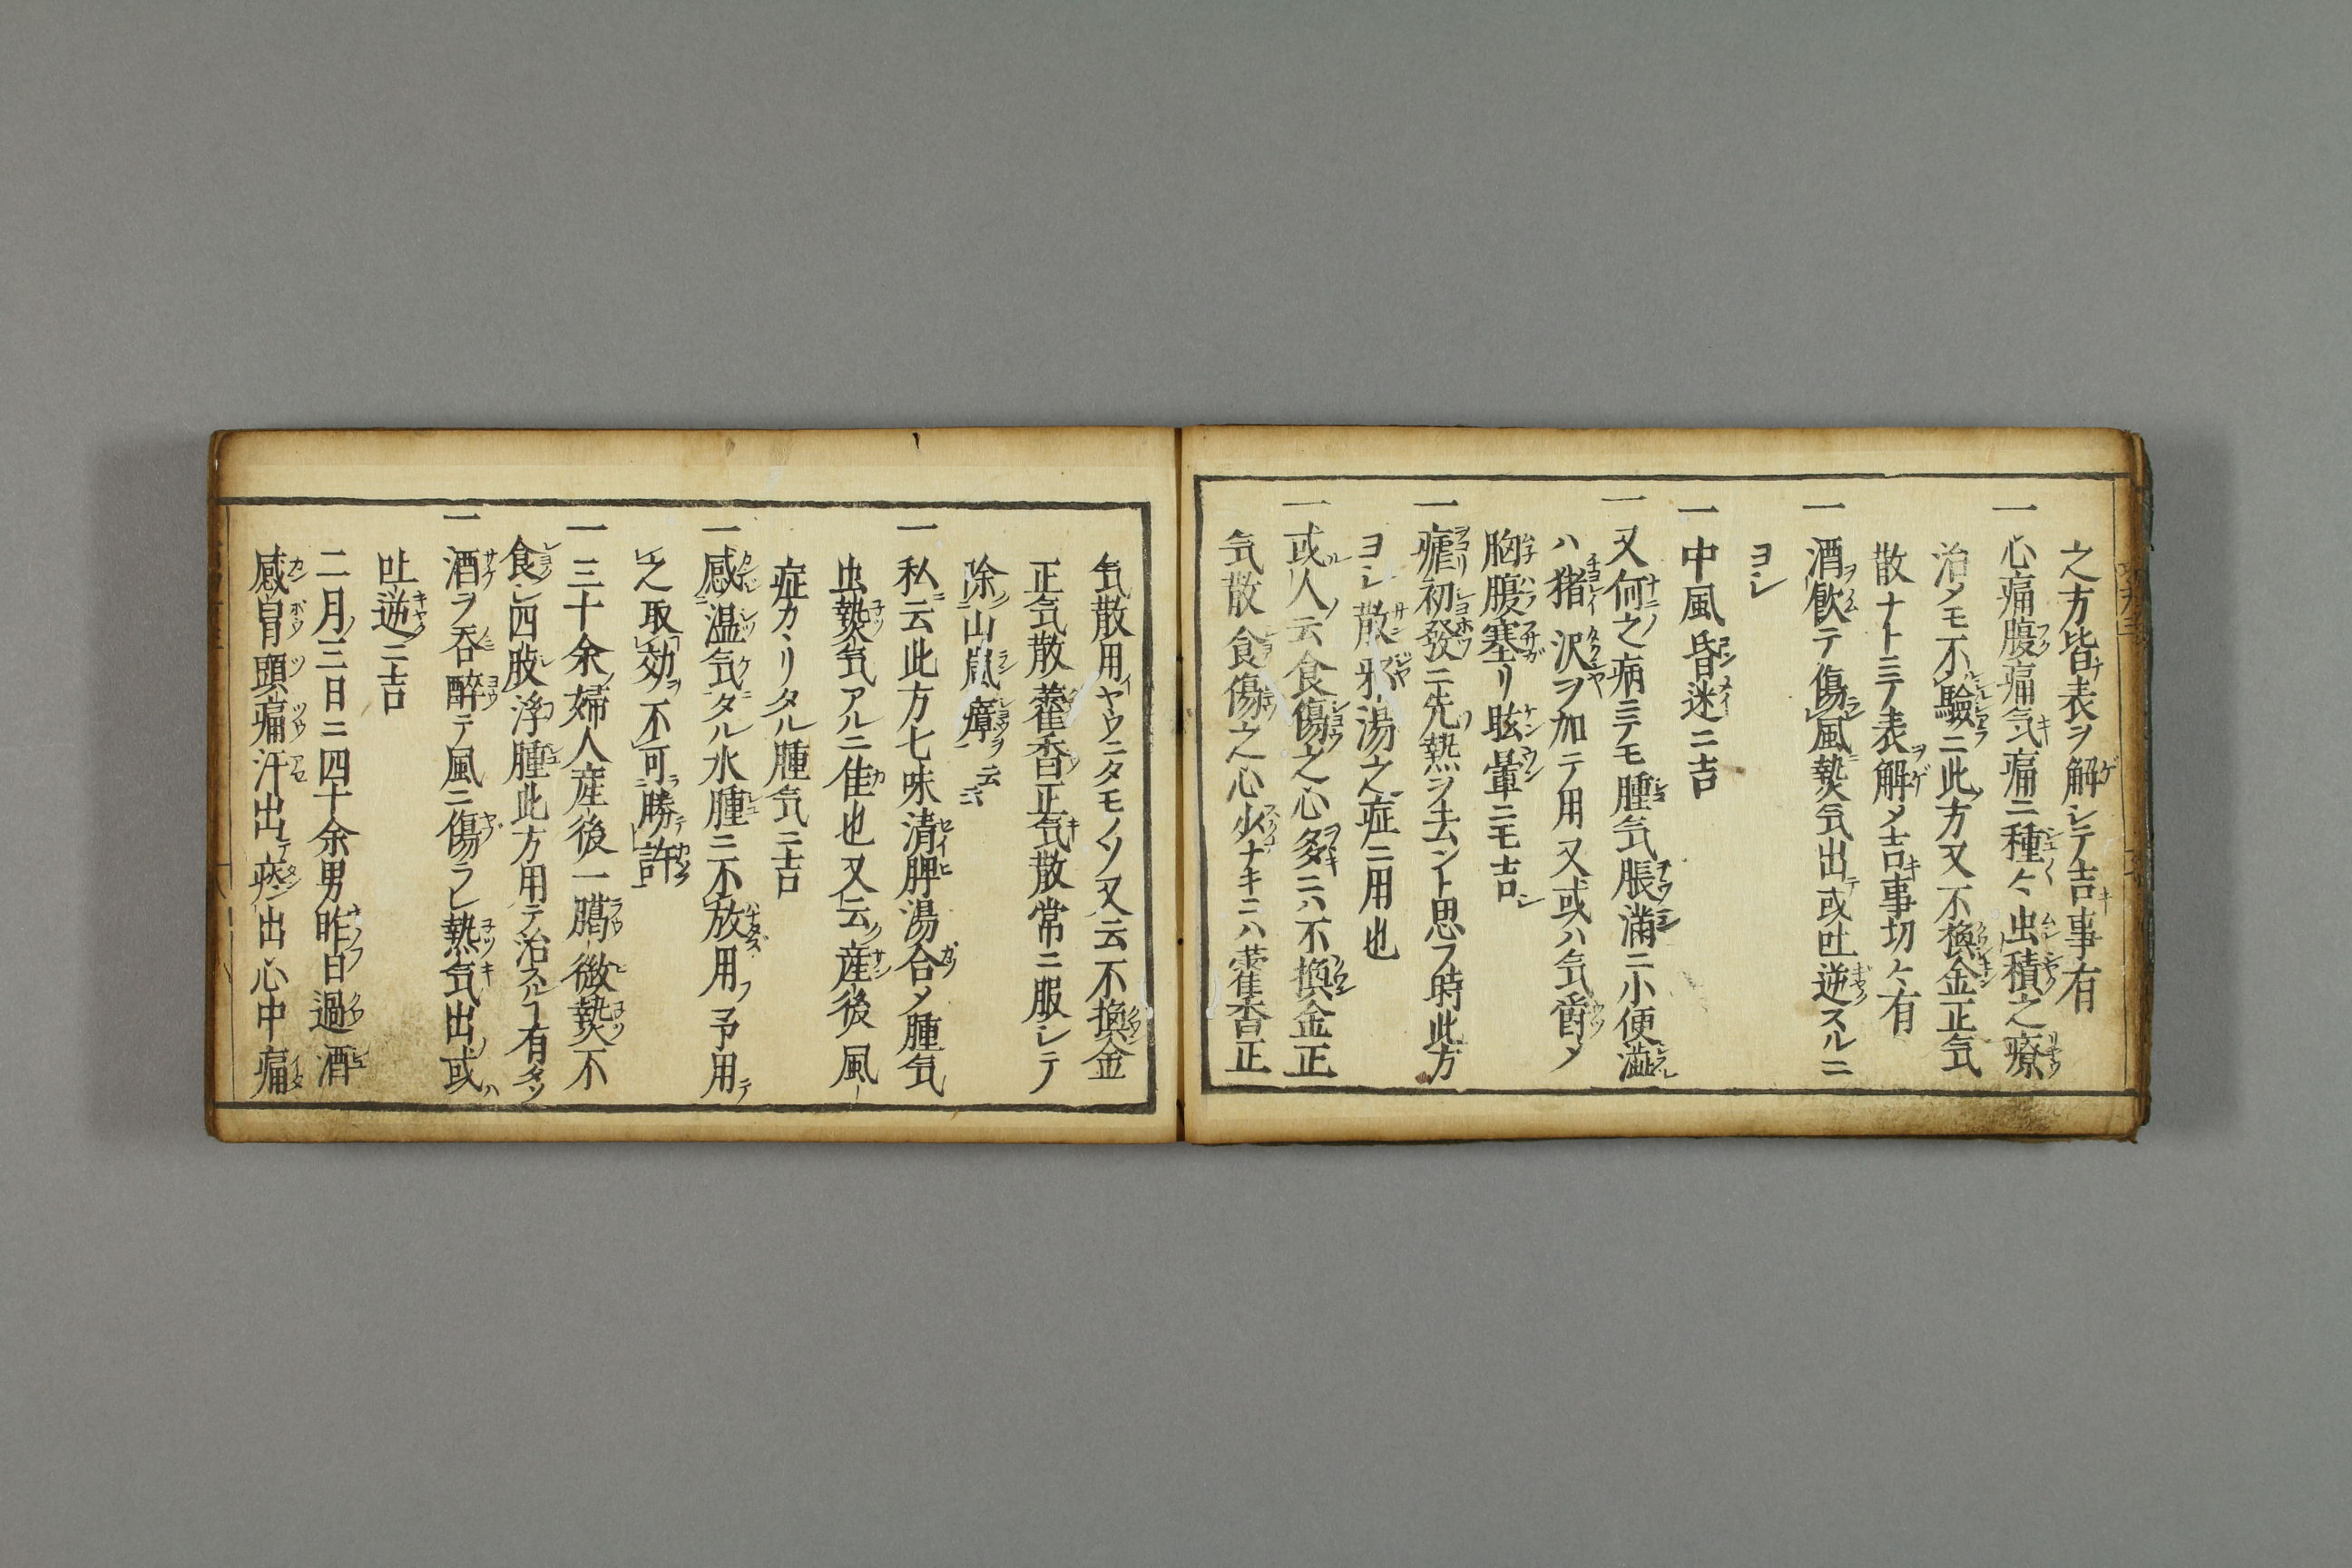 之方皆表ヲ解シテ吉事有
一心痛腹痛気痛ニ種々虫積之療
治タモ不驗ニ此方又不換金正気
散ナトニテ表解メ吉事切々有
一酒飲テ傷風熱気出或吐逆スルニ
ヨシ
一中風昏迷ニ吉
一又何之病ニテモ腫気脹滿ニ小便澁
ハ猪沢ヲ加テ用又或ハ気欝メ
胸腹塞リ眩暈ニモ吉
一瘧初發ニ先熱ヲ去ント思フ時此方
ヨシ散邪湯之症ニ用也
一或人云食傷之心多ニハ不換金正
気散食傷之心少ナキニハ藿香正
気散用ヤウニタモノソ又云不換金
正気散藿香正気散常ニ服シテ
除山嵐瘴云云
一私云此方七味清脾湯合メ腫気
虫熱気アルニ佳也又云産後風
症カヽリタル腫気ニ吉
一感温気タル水腫ニ不放用予用
之取効不可勝許
一三十余婦人産後一臈微熱不
食シ四肢浮腫此方用テ治スルヿ有
一酒ヲ呑醉テ風ニ傷ラレ熱気出或
吐逆ニ吉
二月三日ニ四十余男昨日過酒
感冒頭痛汗出痰出心中痛